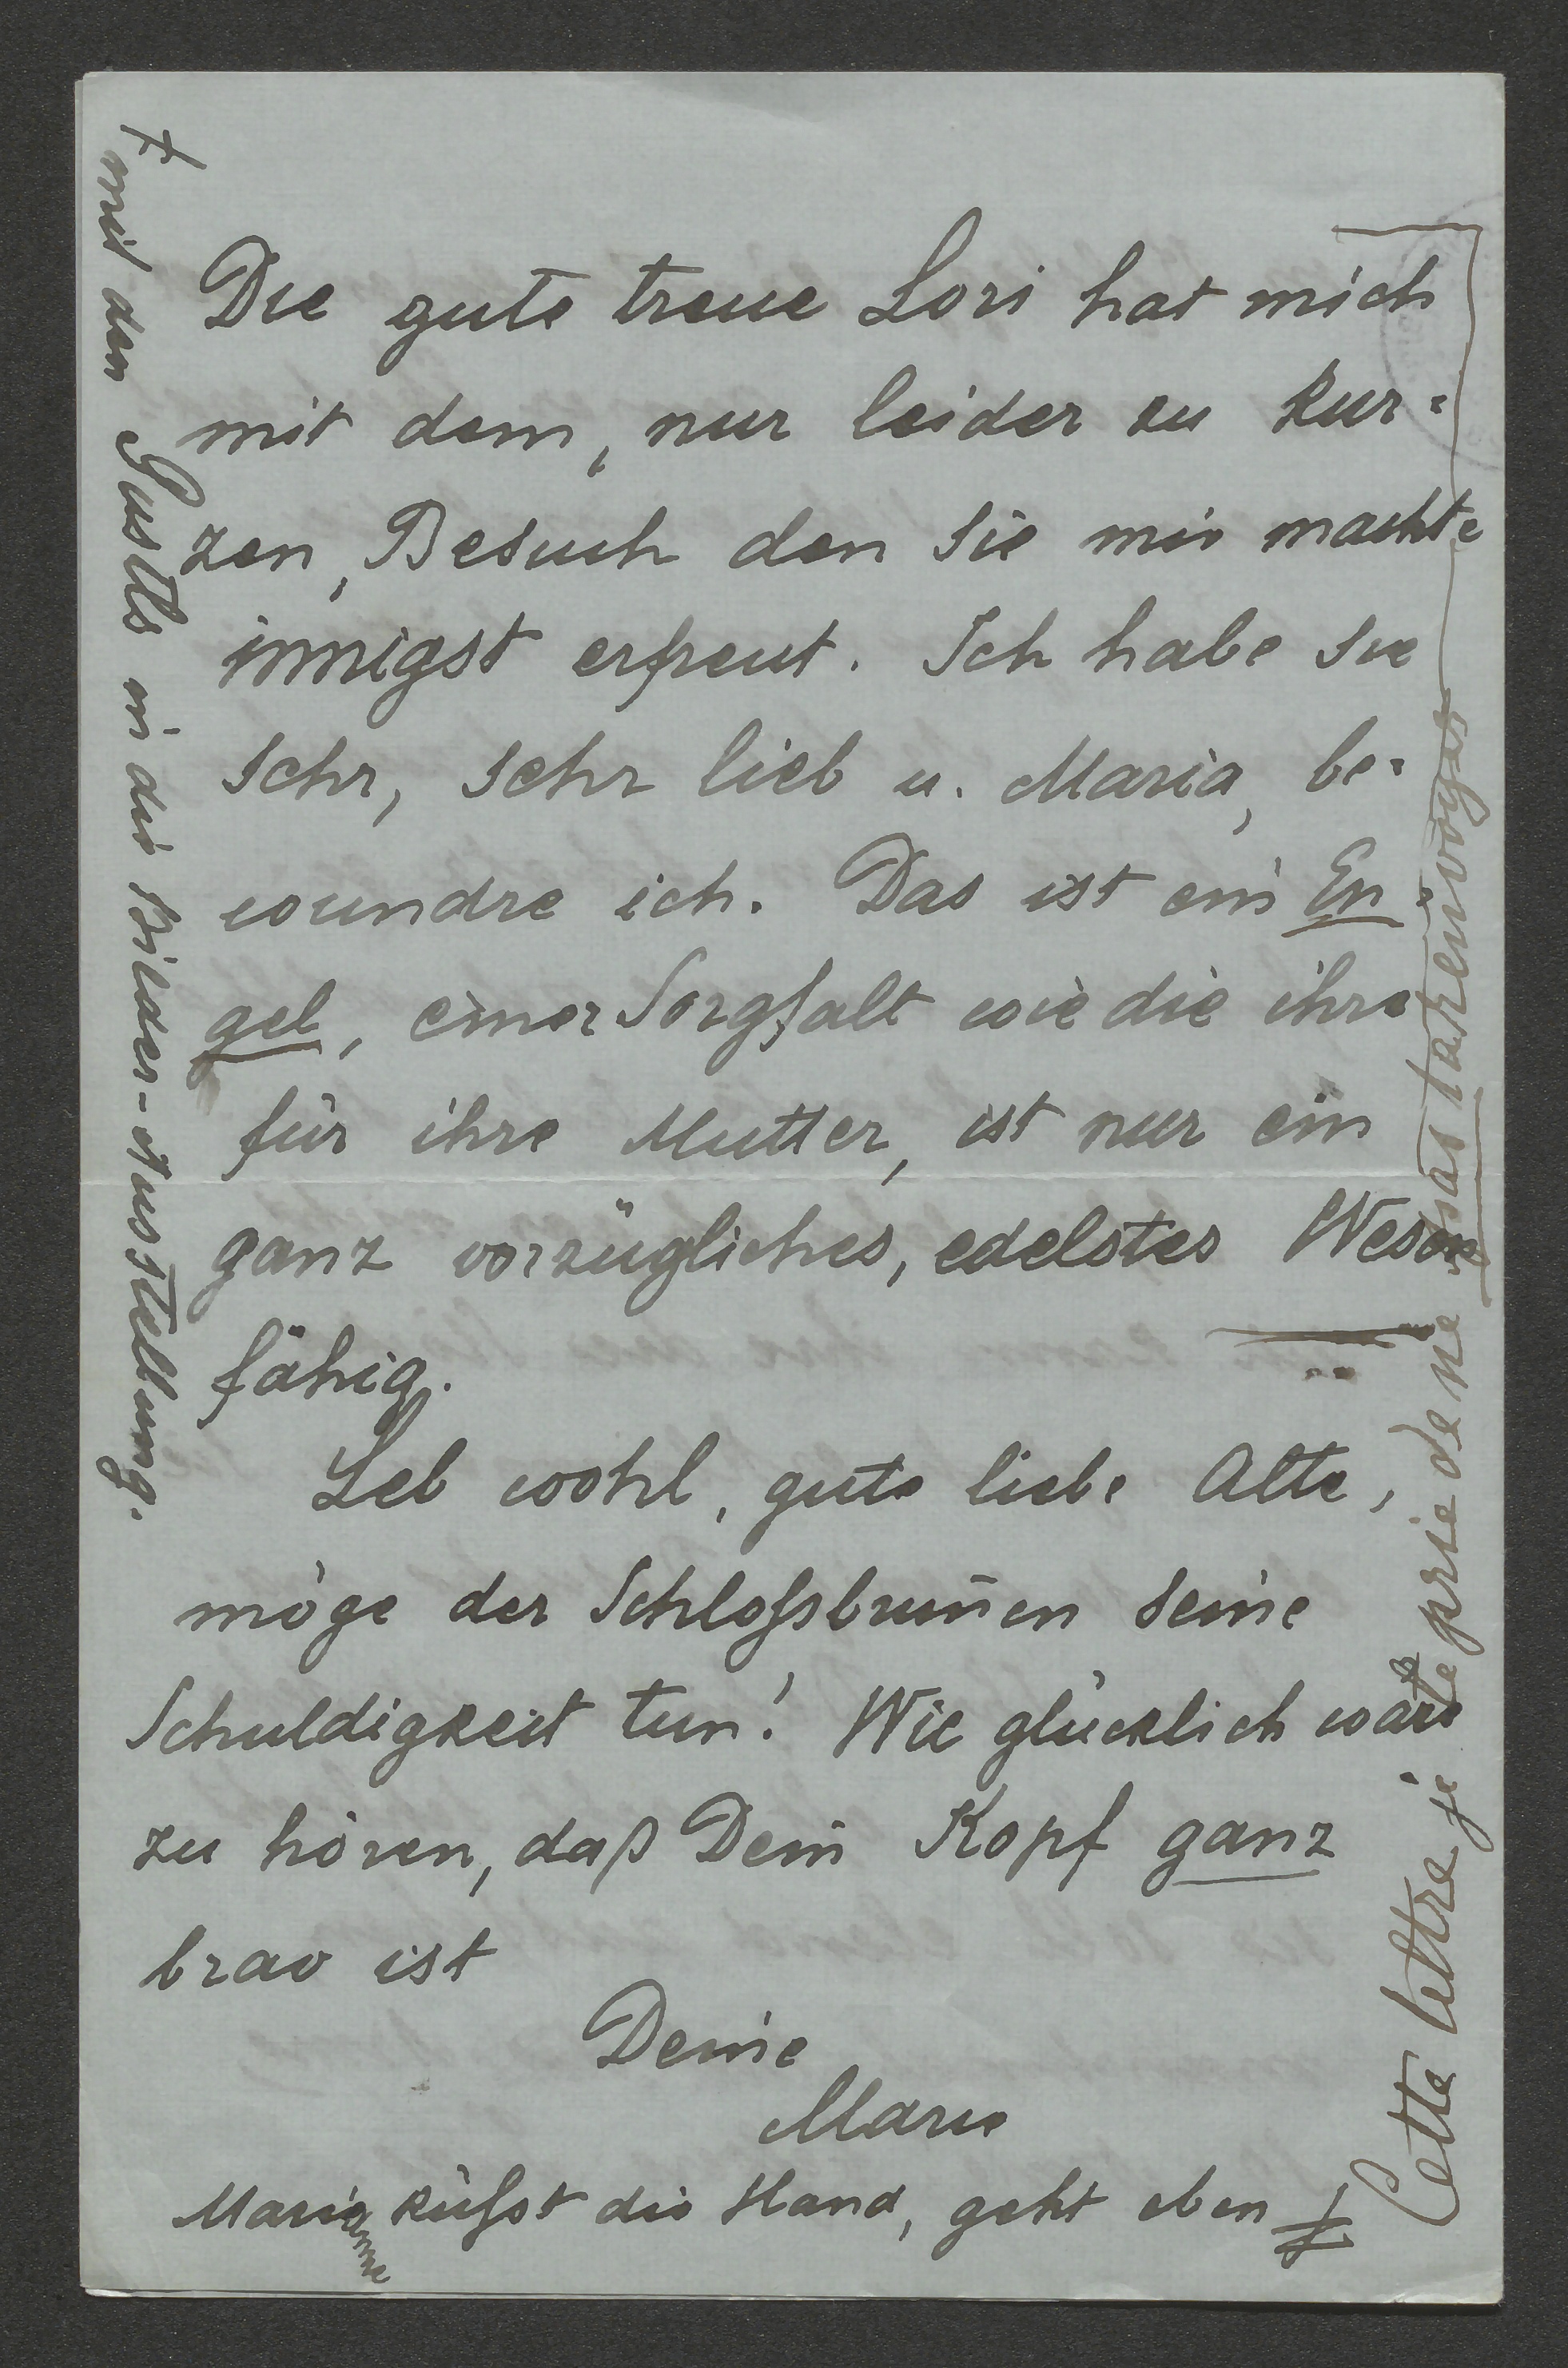 Die gute treue Lori hat mich
mit dem, nur leider zu kur=
zen, Besuch den sie mir machte
innigst erfreut. Ich habe sie
sehr, sehr lieb u. Maria, be=
wundre ich. Das ist ein En=
gel, einer Sorgfalt wie die ihre
für ihre Mutter, ist nur ein
ganz vorzügliches, edelstes Wesen
fähig.
Leb wohl, gute liebe Alte,
möge der Schloßbrun̄en seine
Schuldigkeit tun! Wie glücklich wäre
zu hören, daß Dein Kopf ganz
brav ist
Deine
Marie
Marianne küßt die Hand, geht eben ‡
‡ mit den in die Bilder-Ausstellung.
Cette lettre je te prie de ne pas